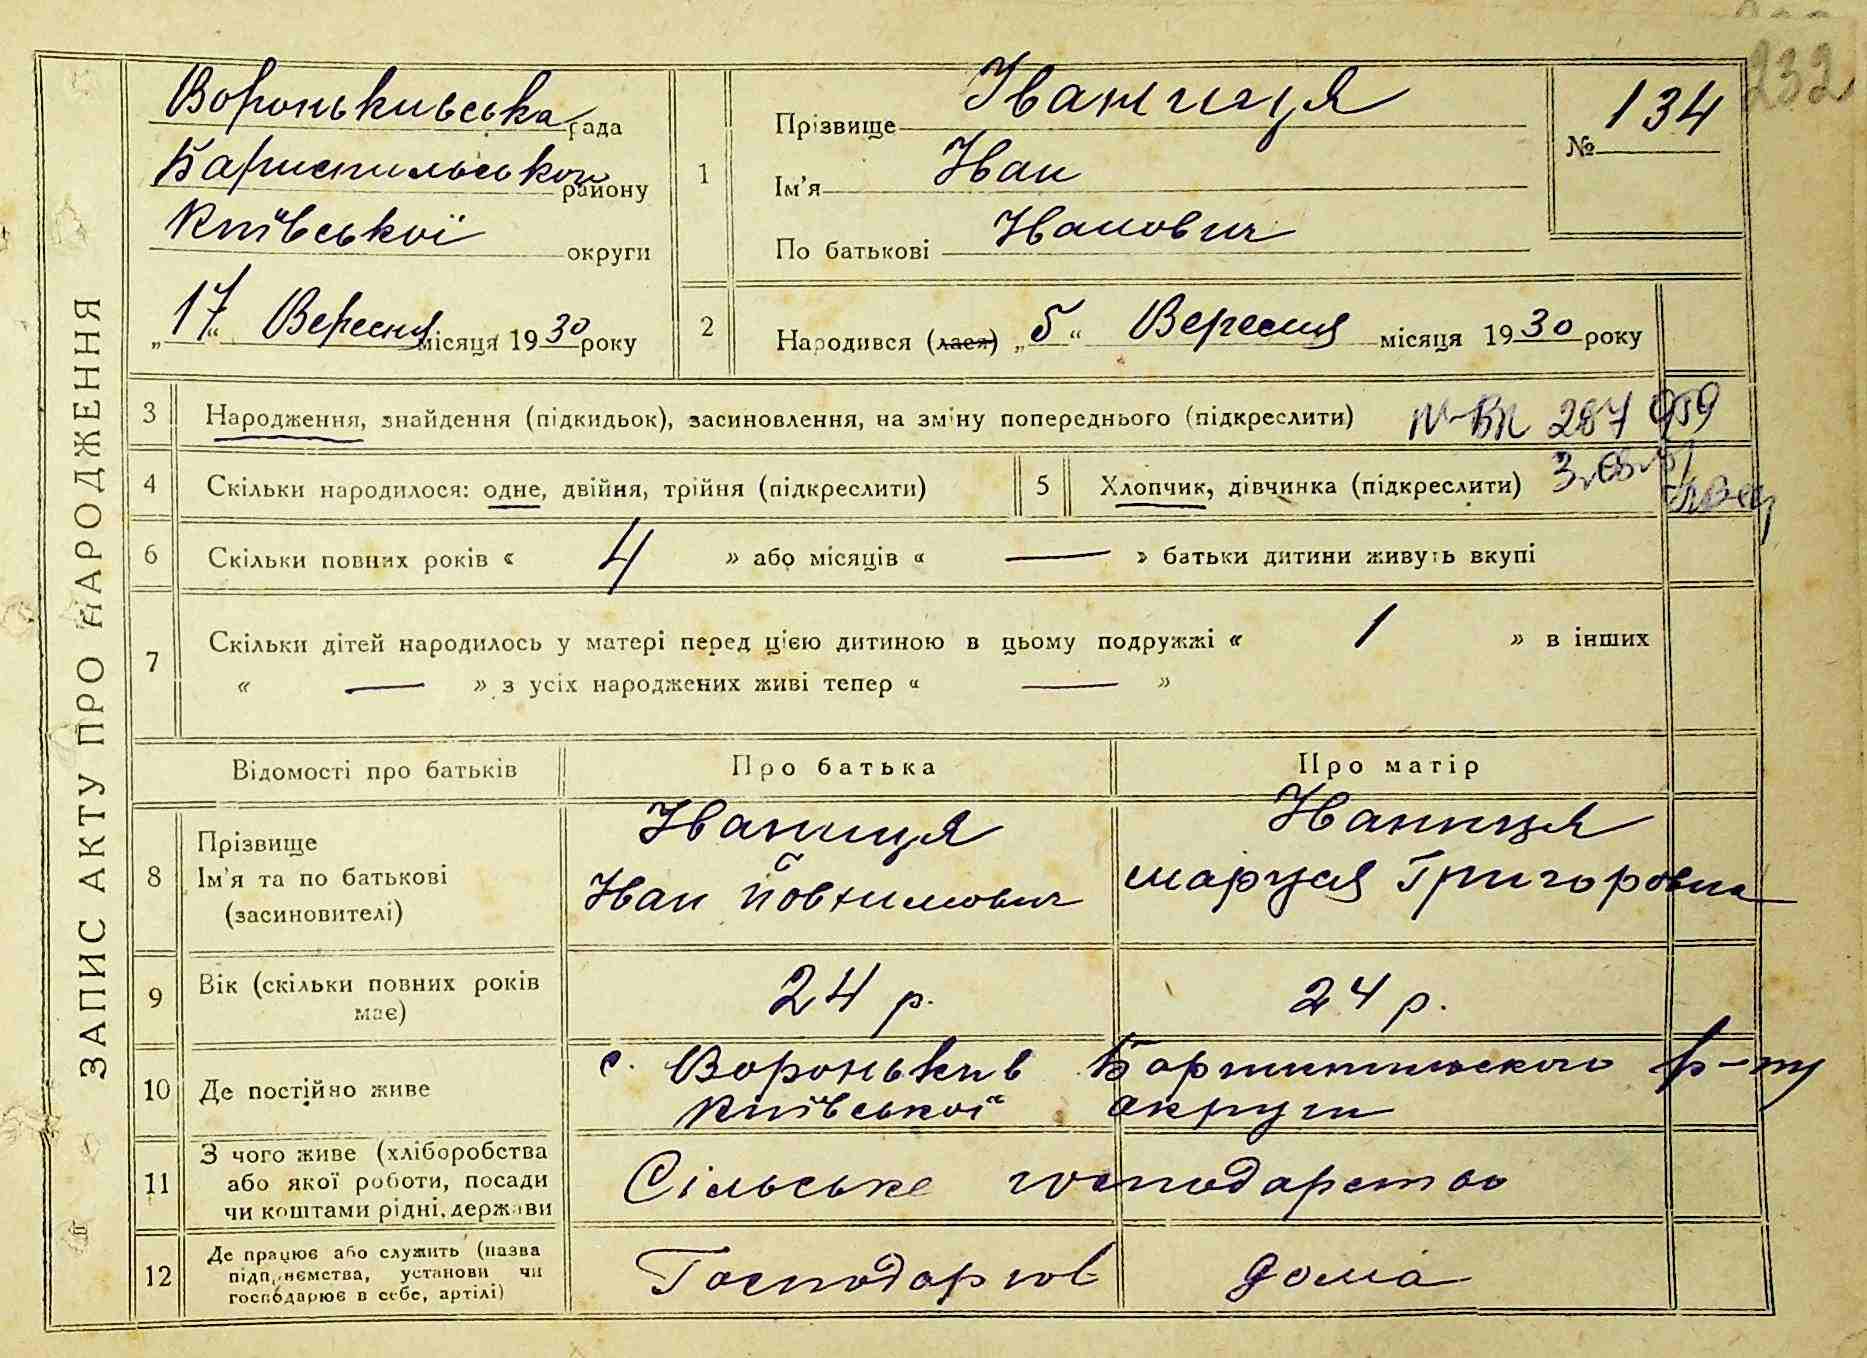 232
ЗАПИС АКТУ ПРО НАРОДЖЕННЯ
Вороньківська рада
Бариспильської району
Київської округи
„17“ Вересня місяця 1930 року
1
Прізвище Іваниця
Ім'я Іван
По батькові Іванович
№ 134
2
Народився (лася) „5“ Вересня місяця 1930 року
3 Народження, знайдення (підкидьок), засиновлення, на зміну попереднього (підкреслити) 287 959
4 Скільки народилося: одне, двійня, трійня (підкреслити)
5 Хлопчик, дівчинка (підкреслити)
6 Скільки повних років « 4 » або місяців « — » батьки дитини живуть вкупі
7 Скільки дітей народилось у матері перед цією дитиною в цьому подружжі « 1 » в інших
« — » з усіх народжених живі тепер « — »
Відомості про батьків Про батька Про матір
8 Прізвище
Ім'я та по батькові
(засиновителі)
Іваниця
Іван Йовхимович
Іваниця
Маруся Григоровна
9 Вік (скільки повних років
має)
24 р. 24 р.
10 Де постійно живе
с. Вороньків Бориспильского р-ну
Київської округи
11 З чого живе (хліборобства
або якої роботи, посади
чи коштами рідні, держави
Сільське господарство
12 Де працює або служить (назва
підприємства, установи чи
господарює в себе, артілі)
Господарює дома